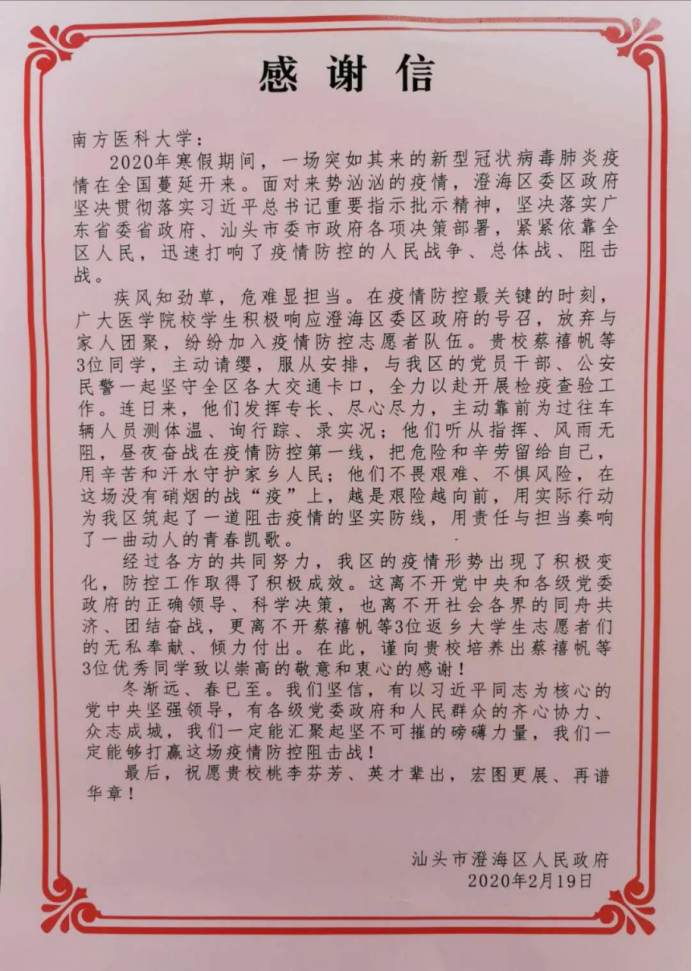 感谢信
南方医科大学：
2020年寒假期间，一场突如其来的新型冠状病毒肺炎疫
情在全国蔓延开来。面对来势汹汹的疫情，澄海区委区政府
坚决贯彻落实习近平总书记重要指示批示精神，坚决落实广
东省委省政府、汕头市委市政府各项决策部署，紧紧依靠全
区人民，迅速打响了疫情防控的人民战争、总体战、阻击
战。
疾风知劲草，危难显担当。在疫情防控最关键的时刻，
广大医学院校学生积极响应澄海区委区政府的号召，放弃与
家人团聚，纷纷加入疫情防控志愿者队伍。贵校蔡禧帆等
3位同学，主动请缨，服从安排，与我区的党员干部、公安
民警一起坚守全区各大交通卡口，全力以赴开展检疫查验工
作。连日来，他们发挥专长、尽心尽力，主动靠前为过往车
辆人员测体温、询行踪、录实况；他们听从指挥、风雨无
阻，昼夜奋战在疫情防控第一线，把危险和辛劳留给自己，
用辛苦和汗水守护家乡人民；他们不畏艰难、不惧风险，在
这场没有硝烟的战“疫”上，越是艰险越向前，用实际行动
为我区筑起了一道阻击疫情的坚实防线，用责任与担当奏响
了一曲动人的青春凯歌。
经过各方的共同努力，我区的疫情形势出现了积极变
化，防控工作取得了积极成效。这离不开党中央和各级党委
政府的正确领导、科学决策，也离不开社会各界的同舟共
济、团结奋战，更离不开蔡禧帆等3位返乡大学生志愿者们
的无私奉献、倾力付出。在此，谨向贵校培养出蔡禧帆等
3位优秀同学致以崇高的敬意和衷心的感谢！
冬渐远、春已至。我们坚信，有以习近平同志为核心的
党中央坚强领导，有各级党委政府和人民群众的齐心协力、
众志成城，我们一定能汇聚起坚不可摧的磅礴力量，我们一
定能够打赢这场疫情防控阻击战！
最后，祝愿贵校桃李芬芳、英才辈出，宏图更展、再谱
华章！
汕头市澄海区人民政府
2020年2月19日